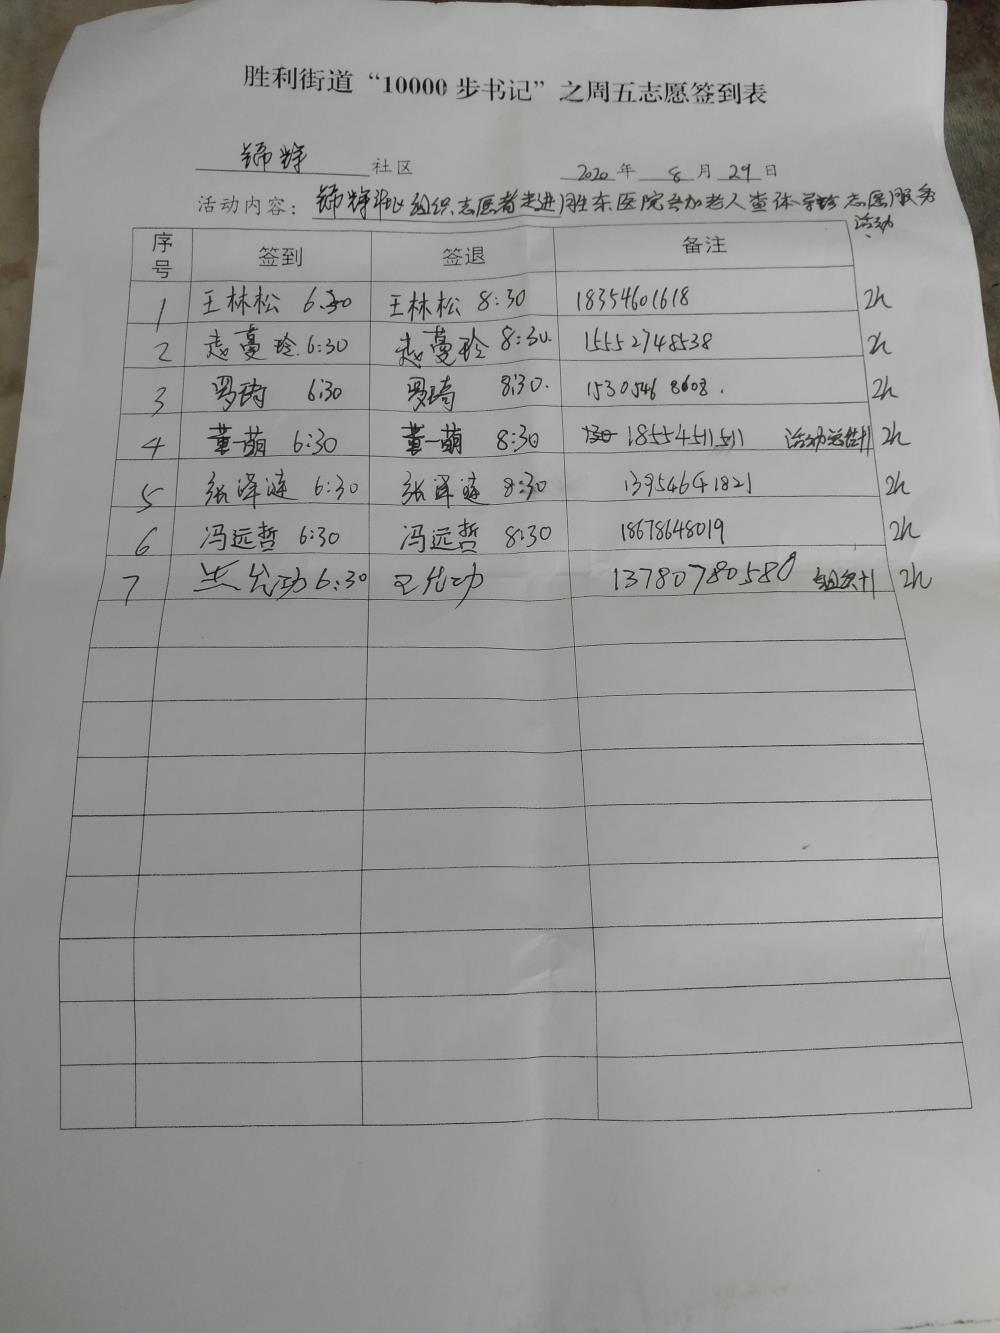 胜利街道“10000步书记”之周五志愿签到表
锦辉 社区 2020年 8月 29日
活动内容：锦辉社区组织志愿者走进胜东医院参加老人查体 志愿服务
活动
序号 签到 签退 备注
1 王林松 6:30 王林松 8:30 18354601618 2h
2 赵蔓玲 6:30 赵蔓玲 8:30. 15552748538 2h
3 罗琦 6:30 罗琦 8:30. 15305468608. 2h
4 董一萌 6:30 董一萌 8:30 18554511511 活动 2h
5 张泽涟 6:30 张泽涟 8:30 13954641821 2h
6 冯远哲 6:30 冯远哲 8:30 18678648019 2h
7 6:30 王允功 13780780580 2h